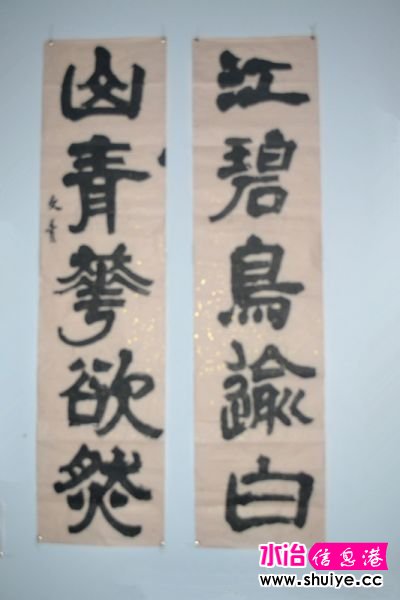 江碧鳥踰白
山青華欲然
水冶信息港
www.shuiye.cc